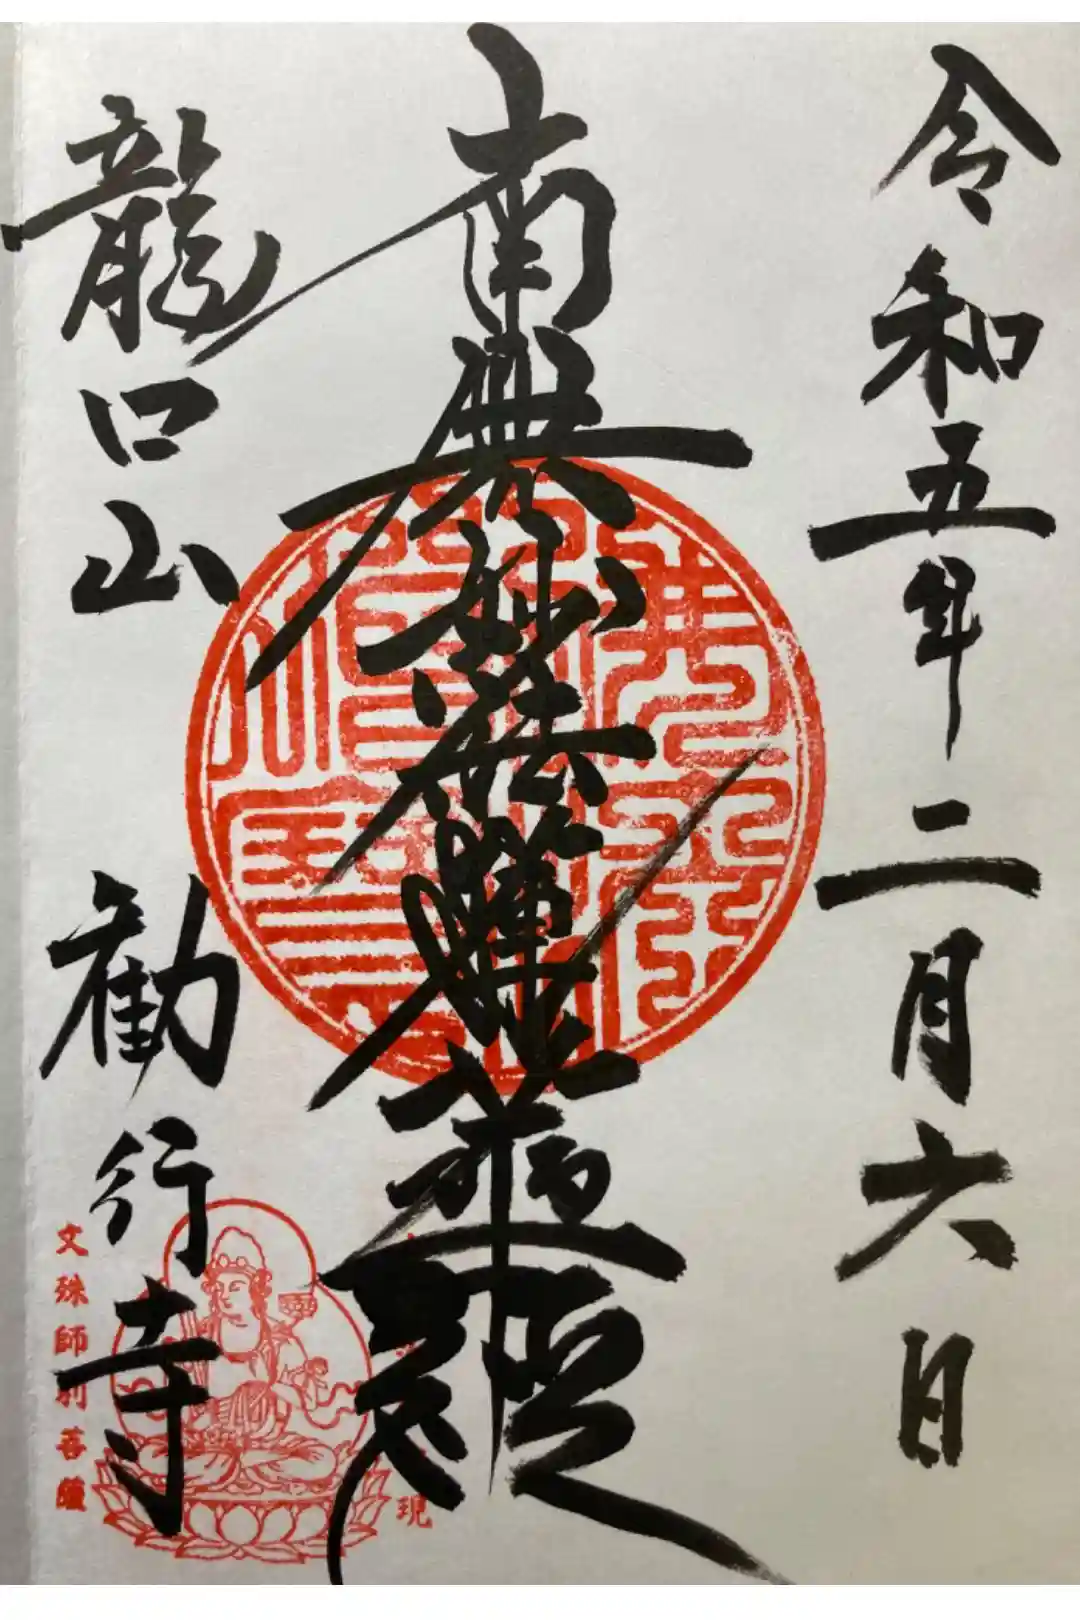 令和五年二月六日
南無妙法蓮華経
龍口山 勧行寺
文殊師利菩薩